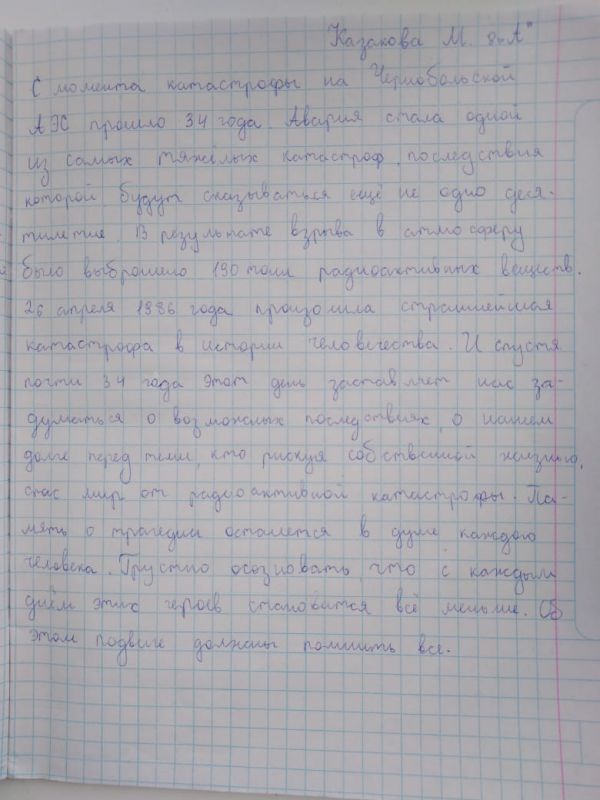 Казакова М. 8„А"
С момента катастрофы на Чернобольской
АЭС прошло 34 года. Авария стала одной
из самых тяжёлых катастроф, последствия
которой будут сказываться ещё не одно деся-
тилетие. В результате взрыва в атмосферу
было выброшено 190 тонн радиоактивных веществ.
26 апреля 1986 года произошла страшнейшая
катастрофа в истории человечества. И спустя
почти 34 года этот день заставляет нас за-
думаться о возможных последствиях, о нашем
долге перед теми, кто рискуя собственной жизнью,
спас мир от радиоактивной катастрофы. Па-
мять о трагедии останется в душе каждого
человека. Грустно осозновать, что с каждым
днём этих героев становится всё меньше. Об
этом подвиге должны помнить все.